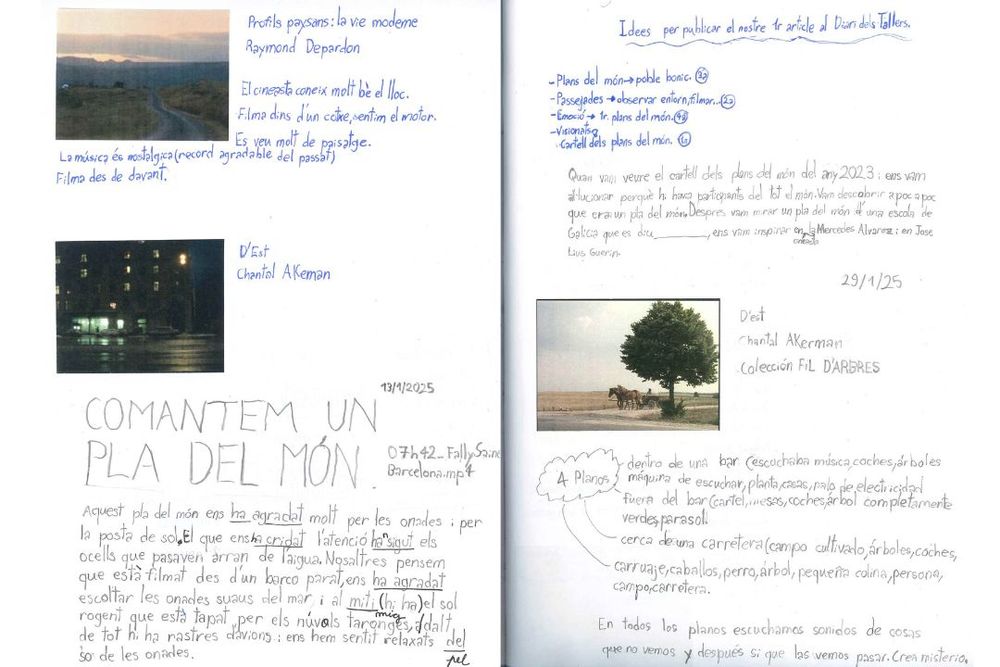 Profils paysans: la vie moderne
Raymond Depardon
El cineasta coneix molt bè el lloc.
Filma dins d'un cotxe, sentim el motor.
Es veu molt de paisatge.
La música és nostalgica (record agradable del passat)
Filma des de davant.
D'Est
Chantal AKeman
13/1/2025
COMANTEM UN
PLA DEL MÓN.
07h42_Fally Saine
Barcelona.mp4
Aquest pla del món ens ha agradat molt per les onades i per
la posta de sol. El que ens ha cridat l'atenció han sigut els
ocells que pasaven arran de l'aigua. Nosaltres pensem
que està filmat des d'un barco parat, ens ha agradat
escoltar les onades suaus del mar i al miti (hi ha) el sol
mig
rogent que està tapat per els nuvols taronges, d'adalt
de tot hi ha rastres d'avions i ens hem sentit relaxats del
so de les onades. pel
Idees per publicar el nostre 1r article al Diari dels Tallers.
-Plans del món→poble bonic. 3a
-Passejades→observar entorn, filmar... 2a
-Emoció→1r. plans del món. 4a
-Visionats
·Cartell dels plans del món. 1a
Quan vam veure el cartell dels plans del món del any 2023 i ens vam
al·lucionar perquè hi havia participants del tot el món. Vam descobrir a poc a poc
que era un pla del món. Despres vam mirar un pla del món d'una escola de
Galicia que es diu________, ens vam inspirar en la Mercedes Alvarez i en Jose
Luis Guerin.
29/1/25
D'est
Chantal AKerman
Colección FiL D'ARBRES
4 Planos
dentro de una bar (escuchaba música, coches, árboles
máquina de escuchar, planta, casas, palo de electricidad
fuera del bar (cartel, mesas, coches, árbol completamente
verdes, parasol.
cerca de una carretera (campo cultivado, árboles, coches,
carruaje, caballos, perro, árbol, pequeña colina, persona,
campo, carretera.
En todos los planos escuchamos sonidos de cosas
que no vemos y después si que las vemos pasar. Crea misterio.